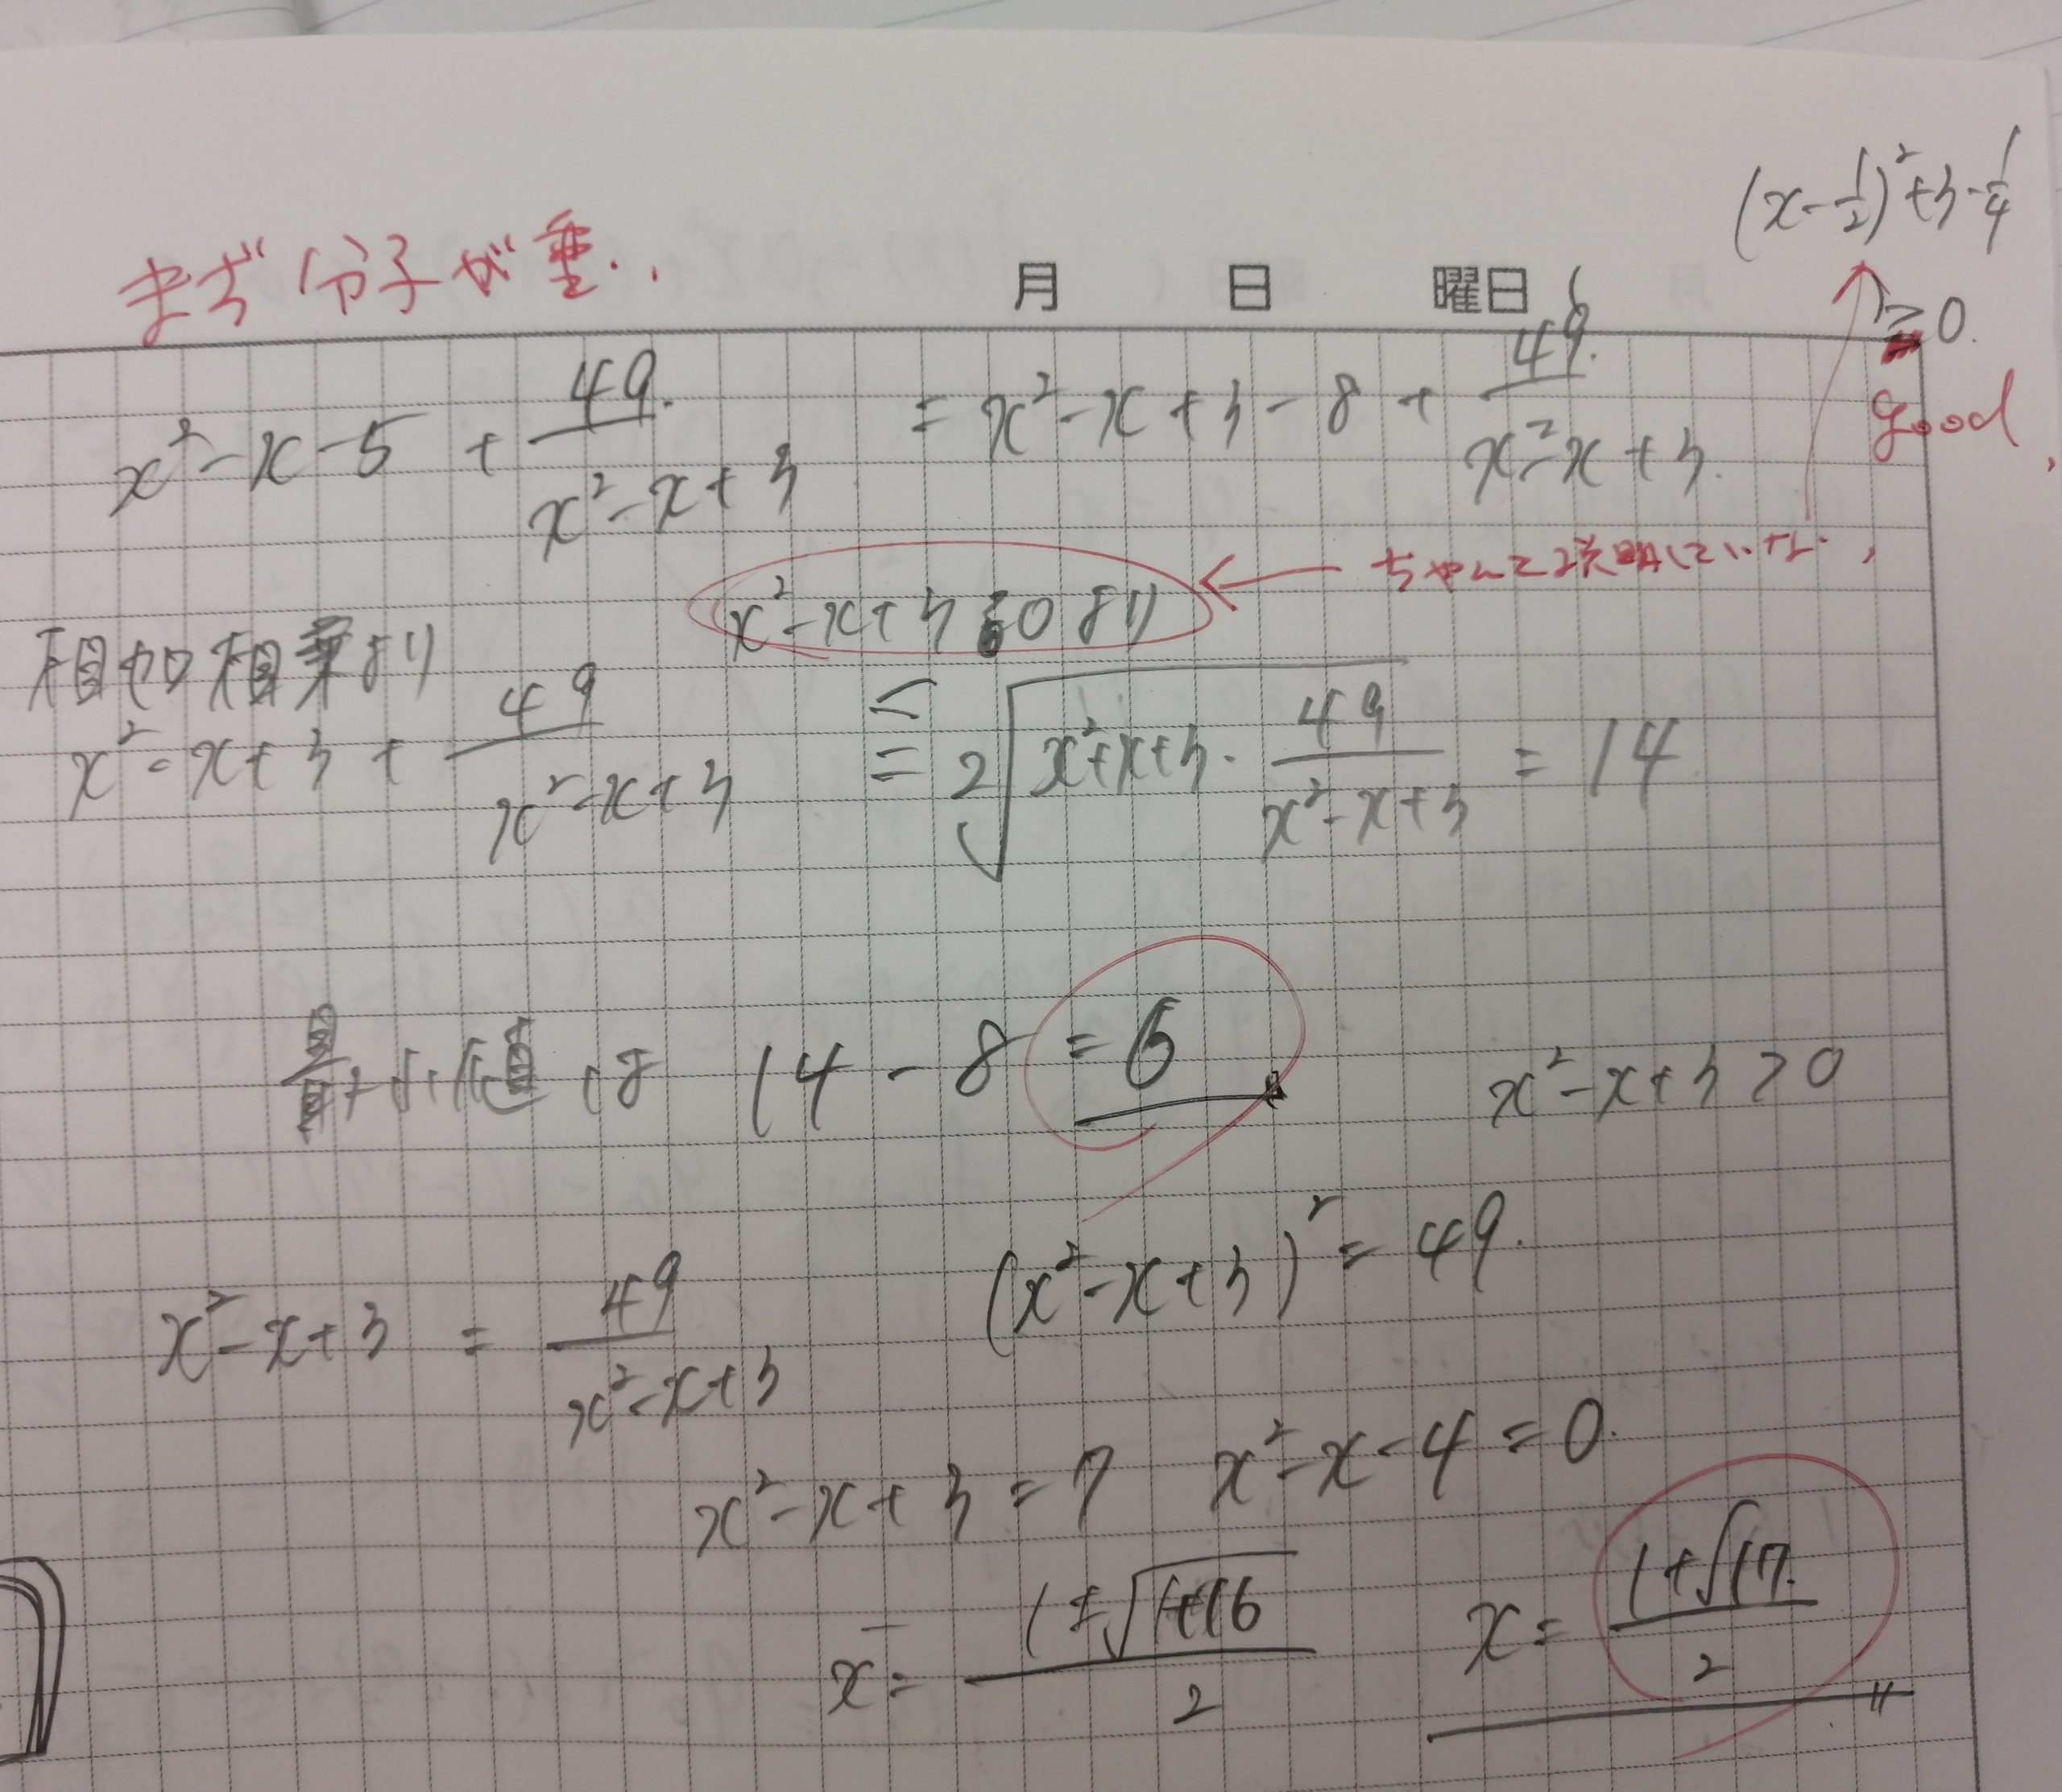 (x-1/2)²+3-1/4
≧0.
good
まず分子が重..
月 日 曜日
x²-x-5 + 49/(x²-x+3) = x²-x+3-8 + 49/(x²-x+3)
x²-x+3 ≧0 より ← ちゃんと説明していない,
相加相乗より
x²-x+3 + 49/(x²-x+3) ≧ 2√(x²+x+3・49/(x²-x+3)) = 14
最小値は 14-8 = 6
x²-x+3>0
x²-x+3 = 49/(x²-x+3) (x²-x+3)² = 49.
x²-x+3=7 x²-x-4=0.
x = (1±√(1+16))/2 x = (1+√17)/2